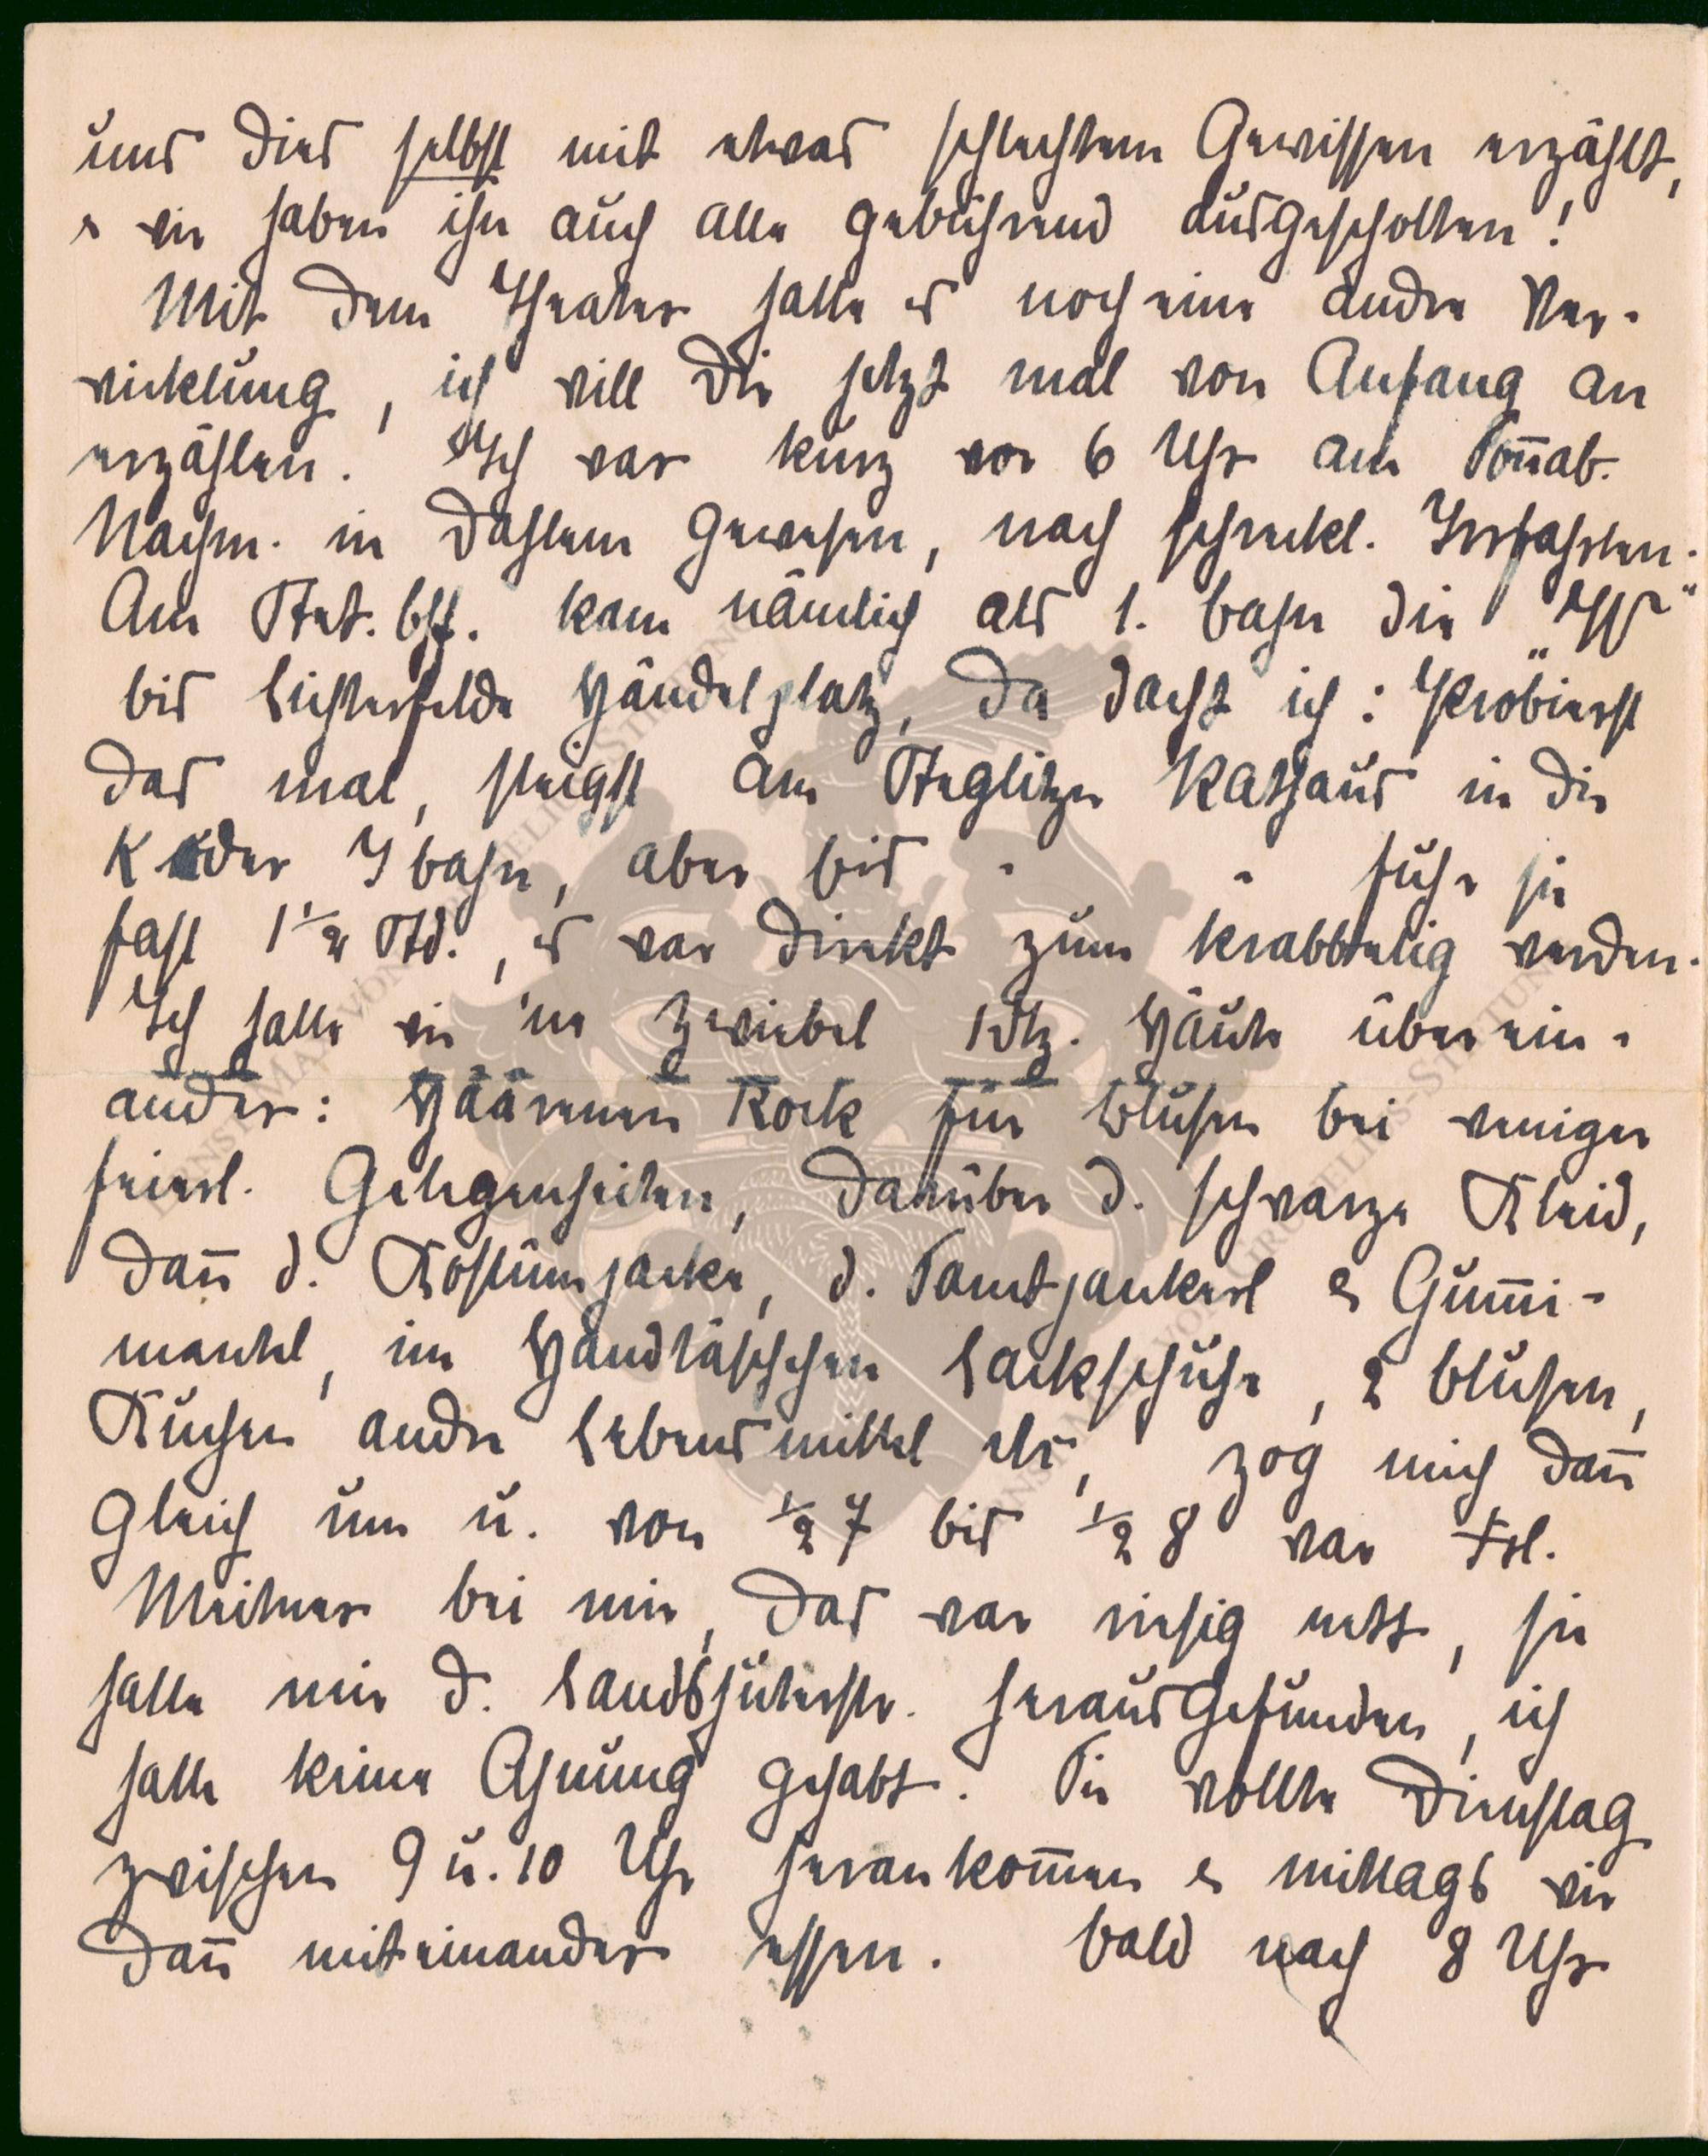 uns dies selbst mit etwas schlechtem Gewissen erzählt,
& wir haben ihn auch alle gebührend ausgescholten!
Mit dem Theater hatte es noch eine andre Ver-
wicklung, ich will Dir jetzt mal von Anfang an
erzählen. Ich war kurz vor 6 Uhr am Son̄ab.
Nachm. in Dahlem gewesen, nach schreckl. Irrfahrten.
Am Stet. bhf. kam nämlich als 1. bahn die "W"
bis Lichterfelde Händelplatz, da dacht ich: Probierst
das mal, steigst am Steglitzer Rathaus in die
K oder I bahn, aber bis " " fuhr sie
fast 1 1/2 Std., es war direkt zum krabbelig werden.
Ich hatte wie 'ne Zwiebel Häute überein-
ander: Häärenen Rock für Blusen bei weniger
feierl. Gelegenheiten, darüber d. schwarze Kleid,
dan̄ d. Kostümjacke, d. Samtjankerl & Gum̄i-
mantel, im Handtäschchen Lackschuhe, 2 blusen,
Kuchen andre Lebensmittel etc, zog mich dan̄
gleich um u. von 1/2 7 bis 1/2 8 war Frl.
Meitner bei mir, das war riesig nett, sie
hatte mir d. Landshuterstr. herausgefunden, ich
hatte keine Ahnung gehabt. Sie wollte Dienstag
zwischen 9 u. 10 Uhr herankom̄en & mittags wir
dan̄ miteinander essen. bald nach 8 Uhr